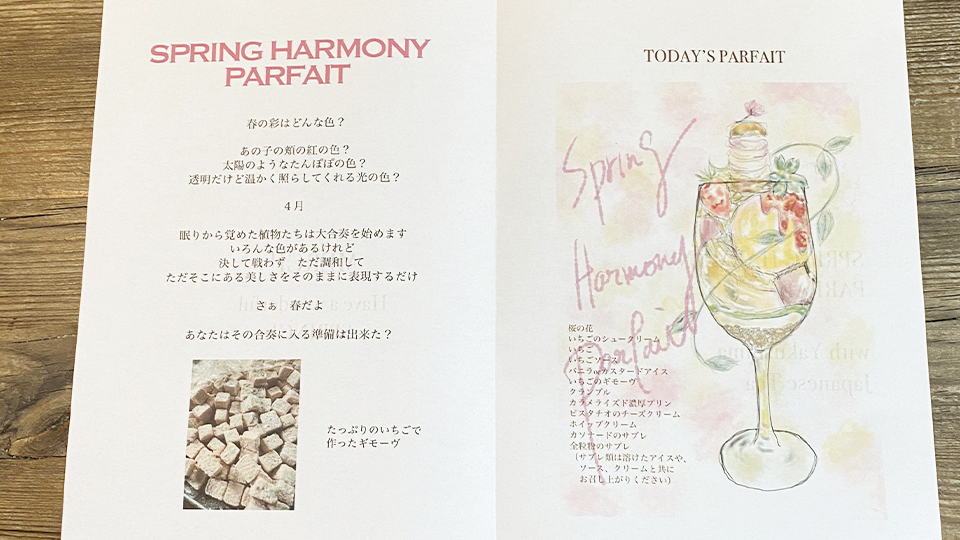 SPRING HARMONY
PARFAIT
春の彩はどんな色？
あの子の頬の紅の色？
太陽のようなたんぽぽの色？
透明だけど温かく照らしてくれる光の色？
４月
眠りから覚めた植物たちは大合奏を始めます
いろんな色があるけれど
決して戦わず　ただ調和して
ただそこにある美しさをそのままに表現するだけ
さぁ　春だよ
あなたはその合奏に入る準備は出来た？
たっぷりのいちごで
作ったギモーヴ
TODAY'S PARFAIT
Spring
Harmony
Parfait
桜の花
いちごのシュークリーム
いちご
いちごソース
バニラorカスタードアイス
いちごのギモーヴ
クランブル
カラメライズド濃厚プリン
ピスタチオのチーズクリーム
ホイップクリーム
カソナードのサブレ
全粒粉のサブレ
（サブレ類は溶けたアイスや、
ソース、クリームと共に
お召し上がりください）